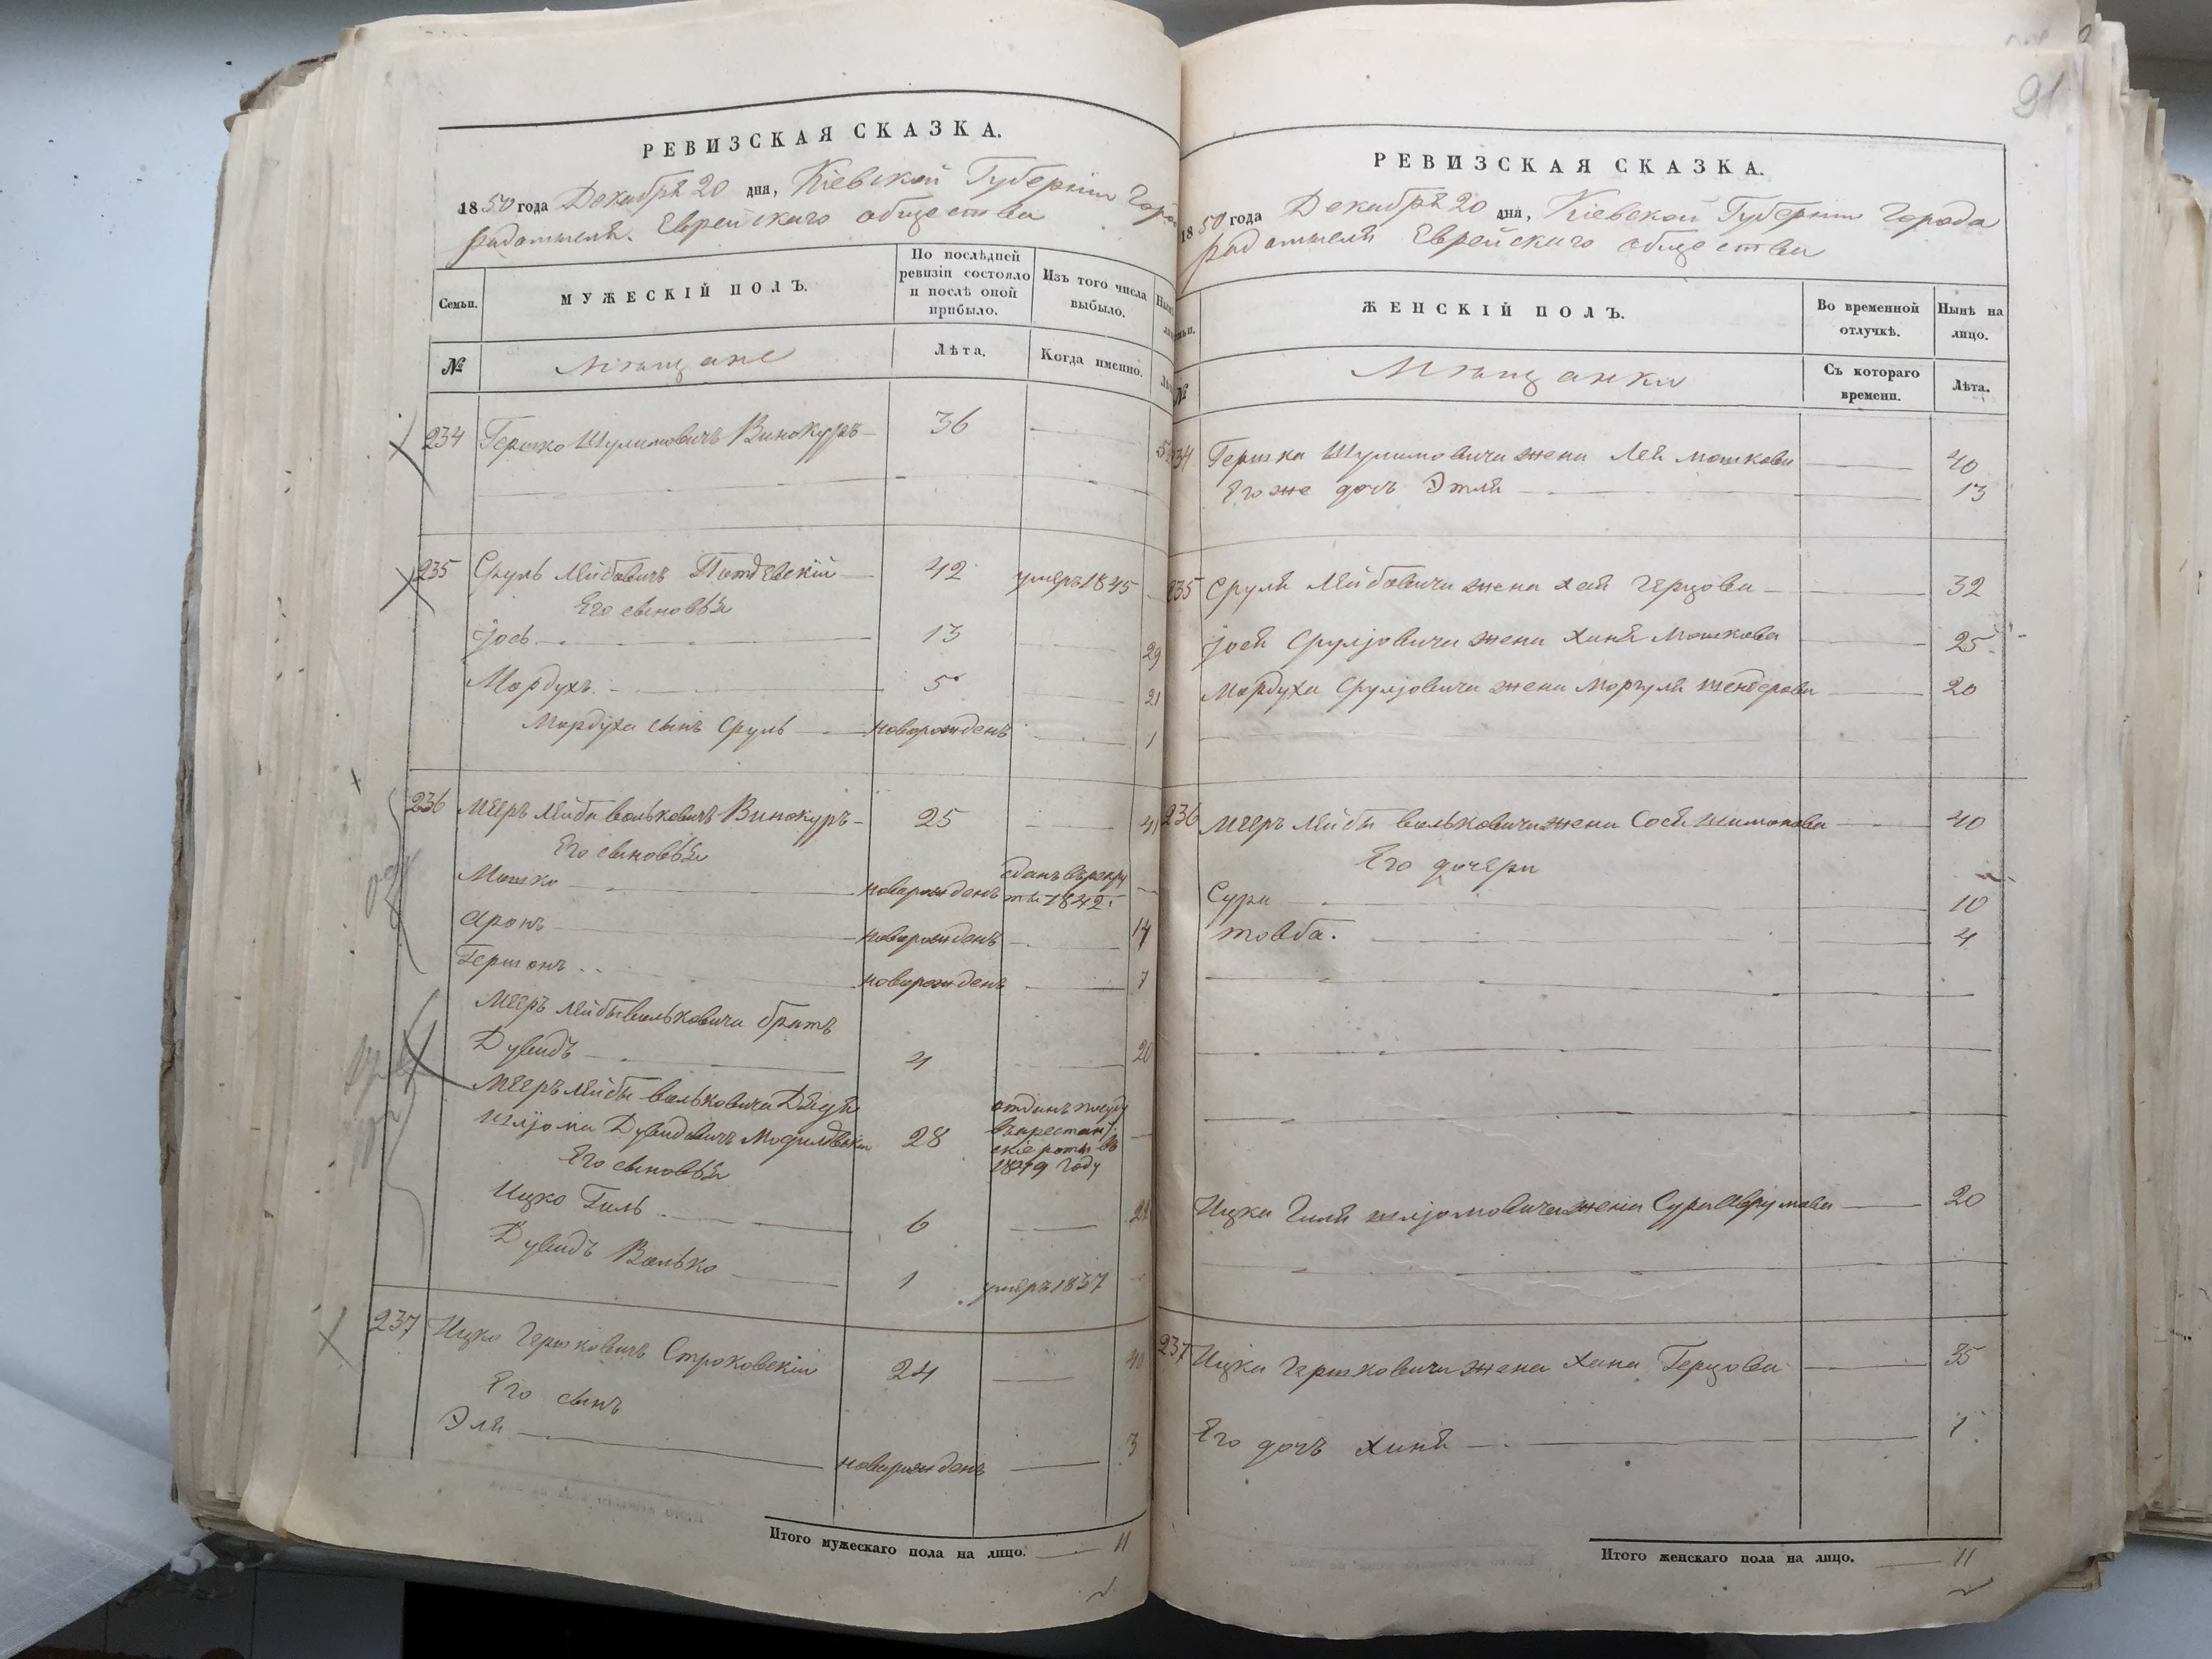 91
РЕВИЗСКАЯ СКАЗКА.
1850 года Декабря 20 дня, Кіевской Губерніи Горо
Радомысля Еврейскаго общества
Семьи.
МУЖЕСКІЙ ПОЛЪ.
По послѣдней ревизіи состояло и послѣ оной прибыло.
Изъ того числа выбыло.
№
Мѣщане
Лѣта.
Когда именно.
234 Гершко Шулимовичъ Винокуръ 36
235 Сруль Лейбовичъ 42 умеръ 1845
Его сыновья
Іось 13 29
Мордухъ 5 21
Мордуха сынъ Сруль новорожденъ 1
236 Мееръ Лейба Вольковичъ Винокуръ 25 41
Его сыновья
Мошко новорожденъ сданъ въ рекру ты 1842.
Аронъ новорожденъ 14
Гершонъ новорожденъ 7
Мееръ Лейбы Вольковича братъ
Дувидъ 4 20
Мееръ Лейбы Вольковича Дядя
Шліома Дувидовичъ 28 отданъ въ арестантскіе роты въ 1849 году
Его сыновья
Ицко Гиль 6 22
Дувидъ Волько 1 умеръ 1837
237 Ицко Гершковичъ Строковскій 24 40
Его сынъ
Эля новорожденъ 3
Итого мужескаго пола на лицо. 11
РЕВИЗСКАЯ СКАЗКА.
1850 года Декабря 20 дня, Кіевской Губерніи Города
Радомысля Еврейскаго общества
ЖЕНСКІЙ ПОЛЪ.
Во временной отлучкѣ.
Нынѣ на лицо.
№
Мѣщанки
Съ котораго времени.
Лѣта.
234 Гершка Шулимовича жена Лея Мошкова 40
Его же дочь Этля 13
235 Сруля Лейбовича жена Хая Герцова 32
Іося Срулiовича жена Хиня Мошкова 25
Мордуха Срулiовича жена Моргуля Шендерова 20
236 Мееръ Лейбы Вольковича жена Сося Шимонова 40
Его дочери
Сура 10
Товба. 4
Ицка Гиля Шліомовича жена Сура Аврумова 20
237 Ицка Гершковича жена Хана Герцова 35
Его дочь Хиня 1
Итого женскаго пола на лицо. 11